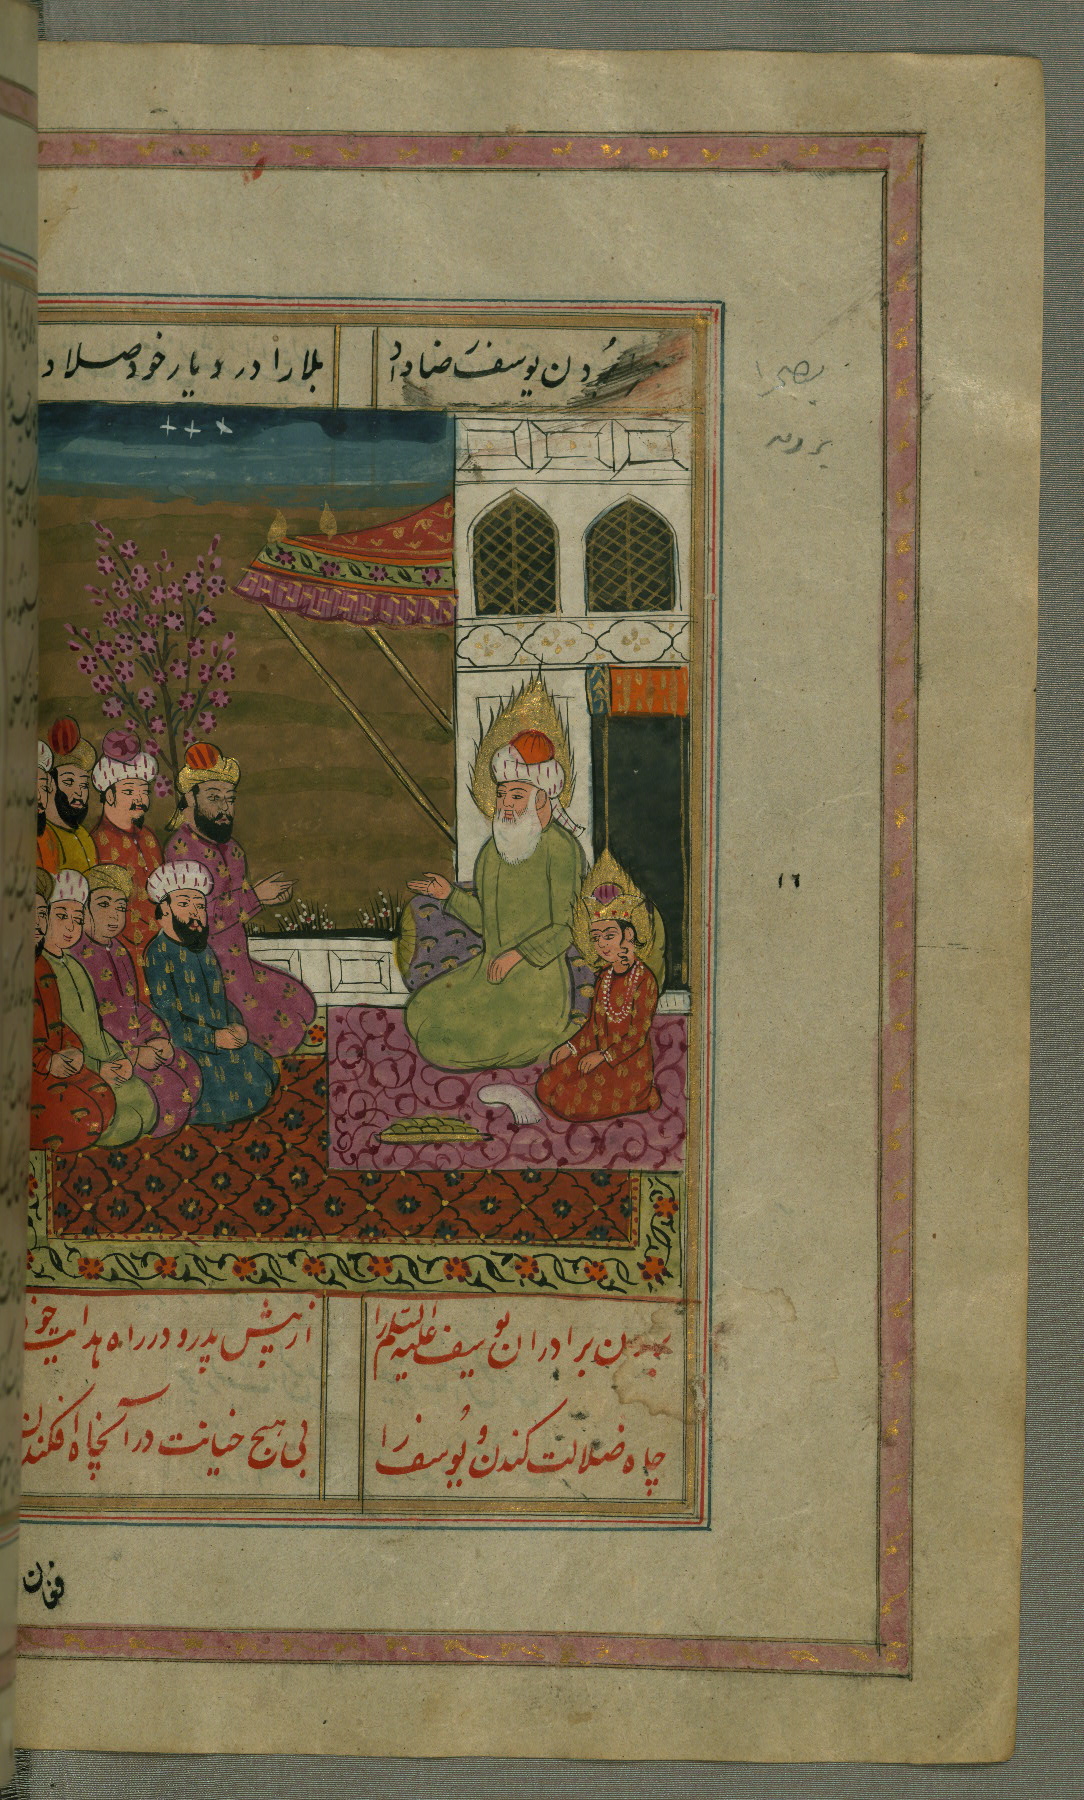 بردن یوسف رضا داد
بلا را در دیار خود صلا داد
بصحرا
بردن
١٦
بردن برادران یوسف علیه السلام را
از پیش پدر و در راه هدایت خود
چاه ضلالت کندن و یوسف را
بی هیچ خیانت در آن چاه افکندن
فغان